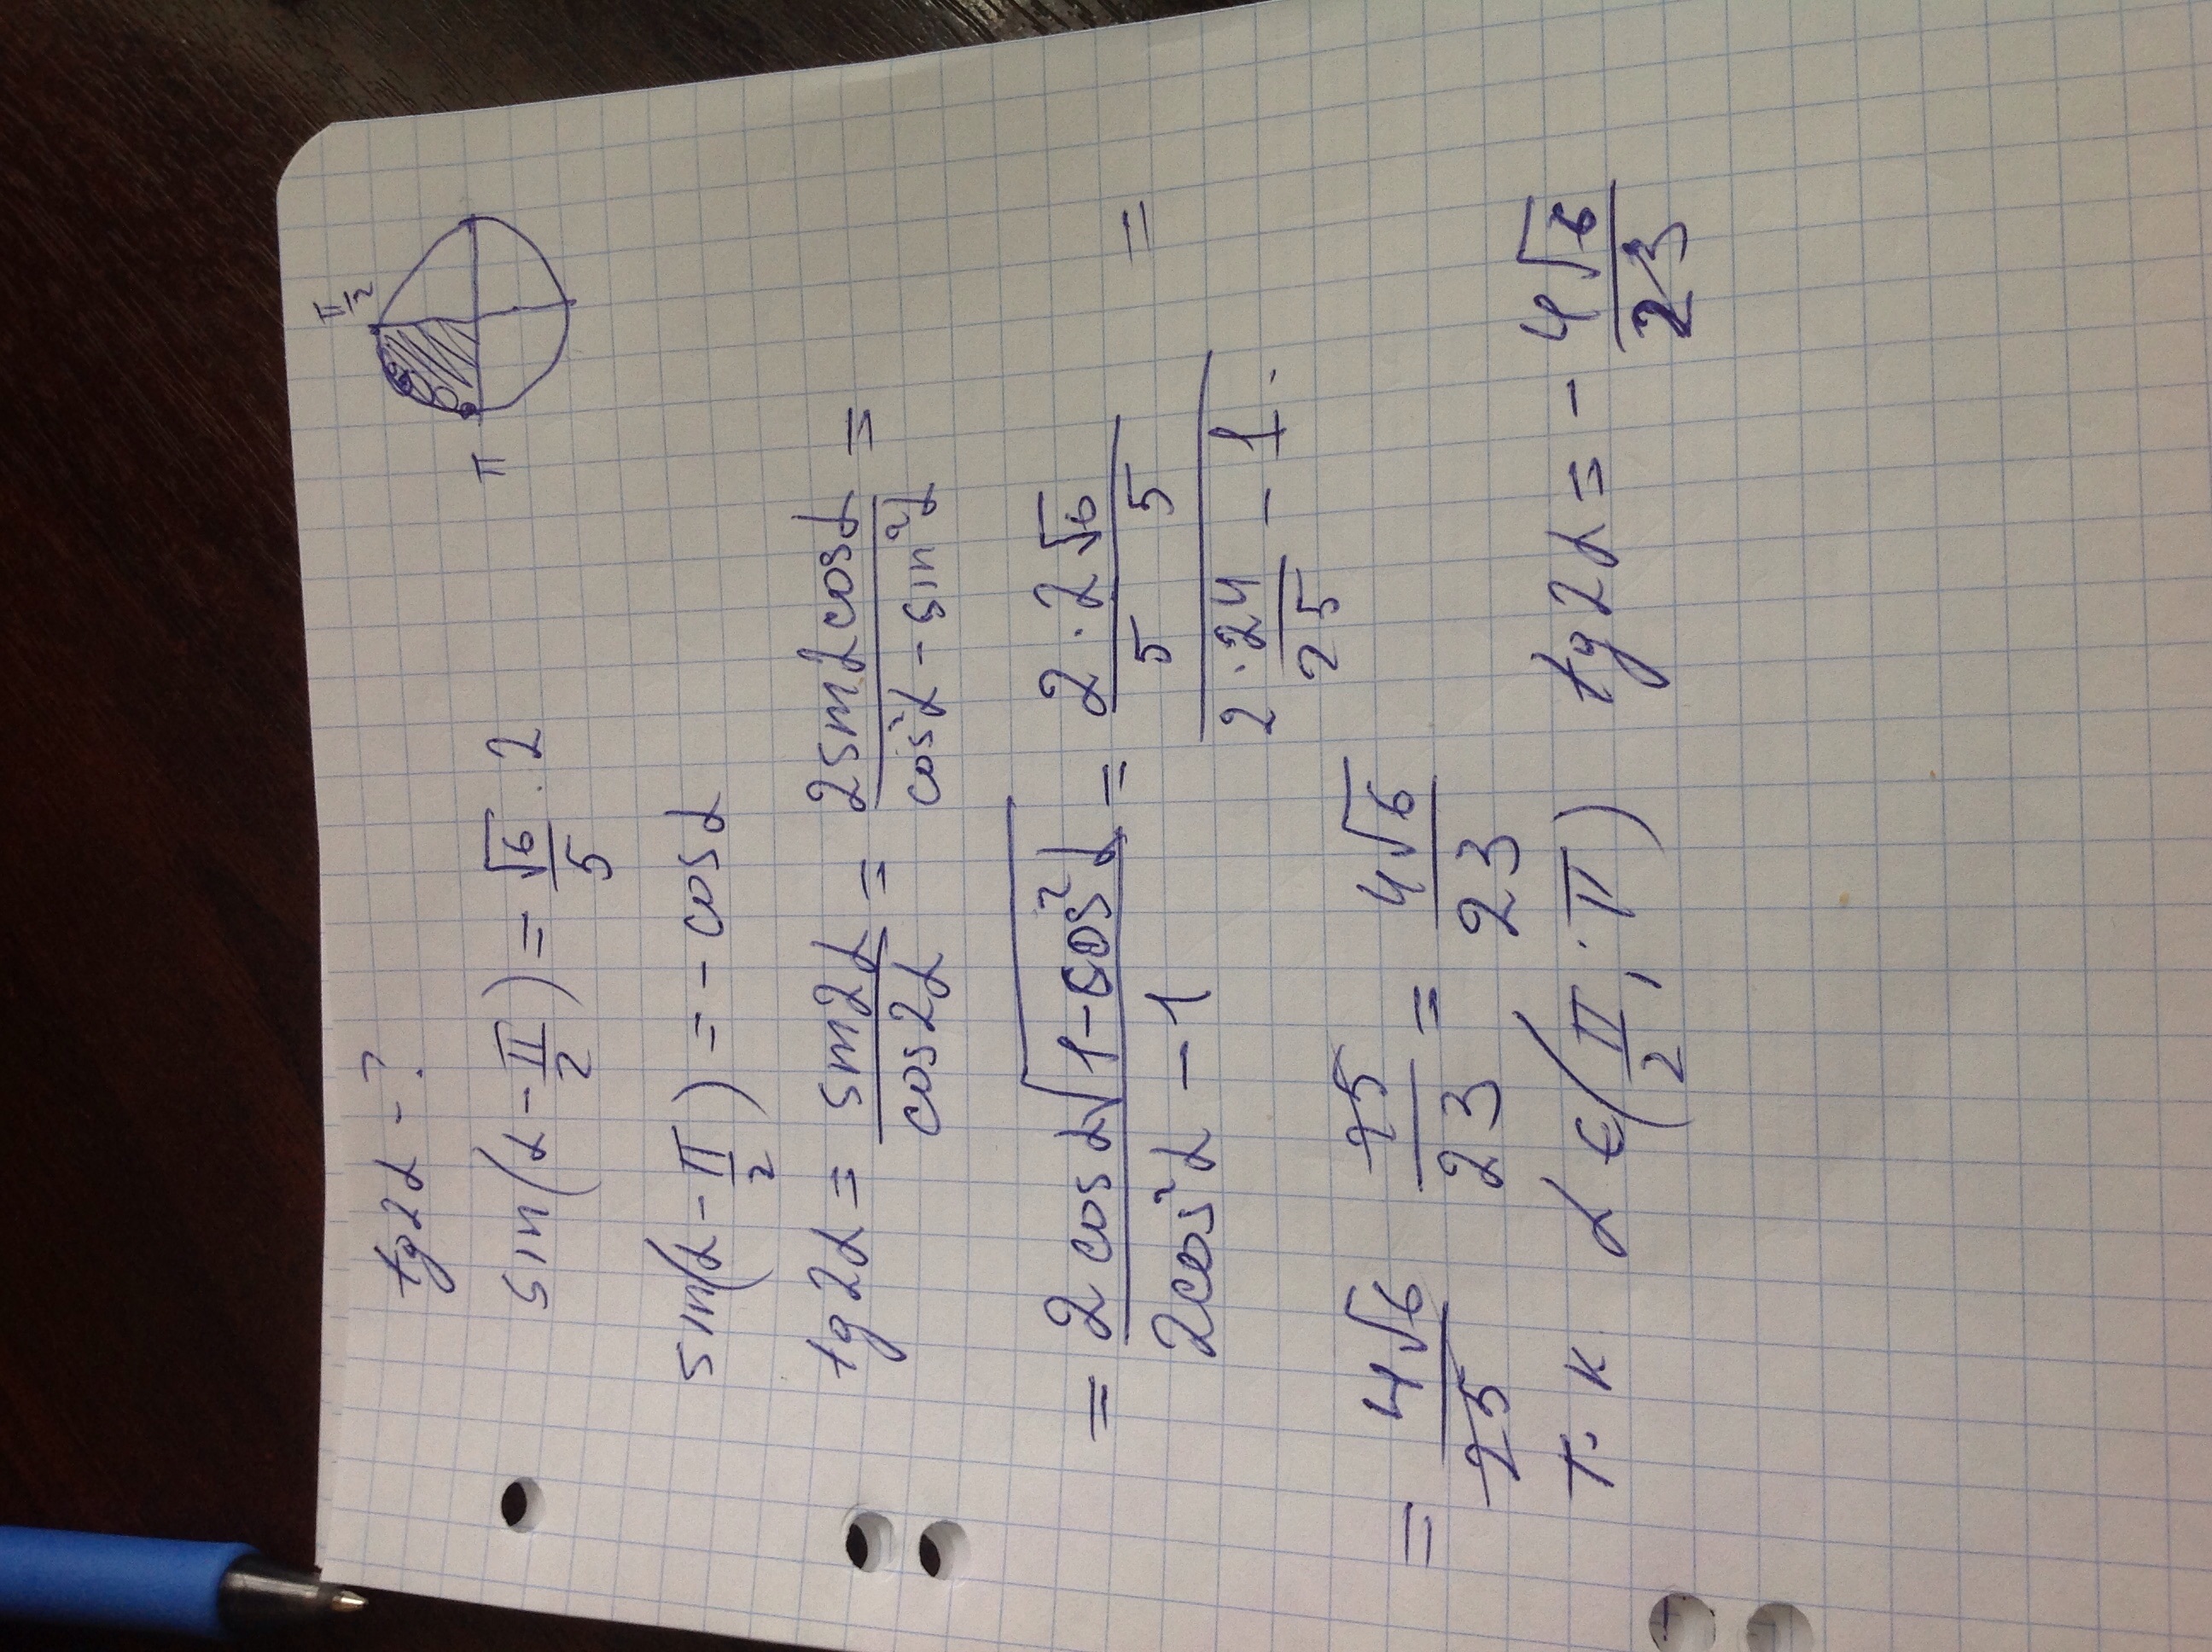 tg2α - ?
π/2
π
sin(α - π/2) = √6/5 · 2
sin(α - π/2) = - cosα
tg2α = sin2α/cos2α = 2sinαcosα/(cos²α - sin²α) =
= 2cosα√(1-cos²α)/(2cos²α - 1) = (2·2√6/(5 5))/(2·24/25 - 1) =
= 4√6/25 25/23 = 4√6/23
т.к α ∈ (π/2; π) tg2α = - 4√6/23